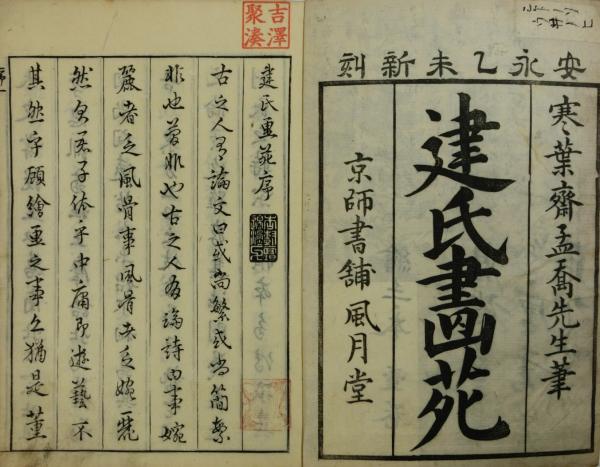 安永乙未新刻
寒葉齋孟喬先生筆
建氏畫苑
京師書舗風月堂
吉澤
聚湊
建氏畫苑序
古之人有論文曰或尚繁或尚簡繁
非也簡非也古之人有論詩曰事婉
麗者乏風骨事風骨者乏婉麗
然君子依乎中庸即遊藝不
其然乎顧繪畫之事亦猶是董
序一